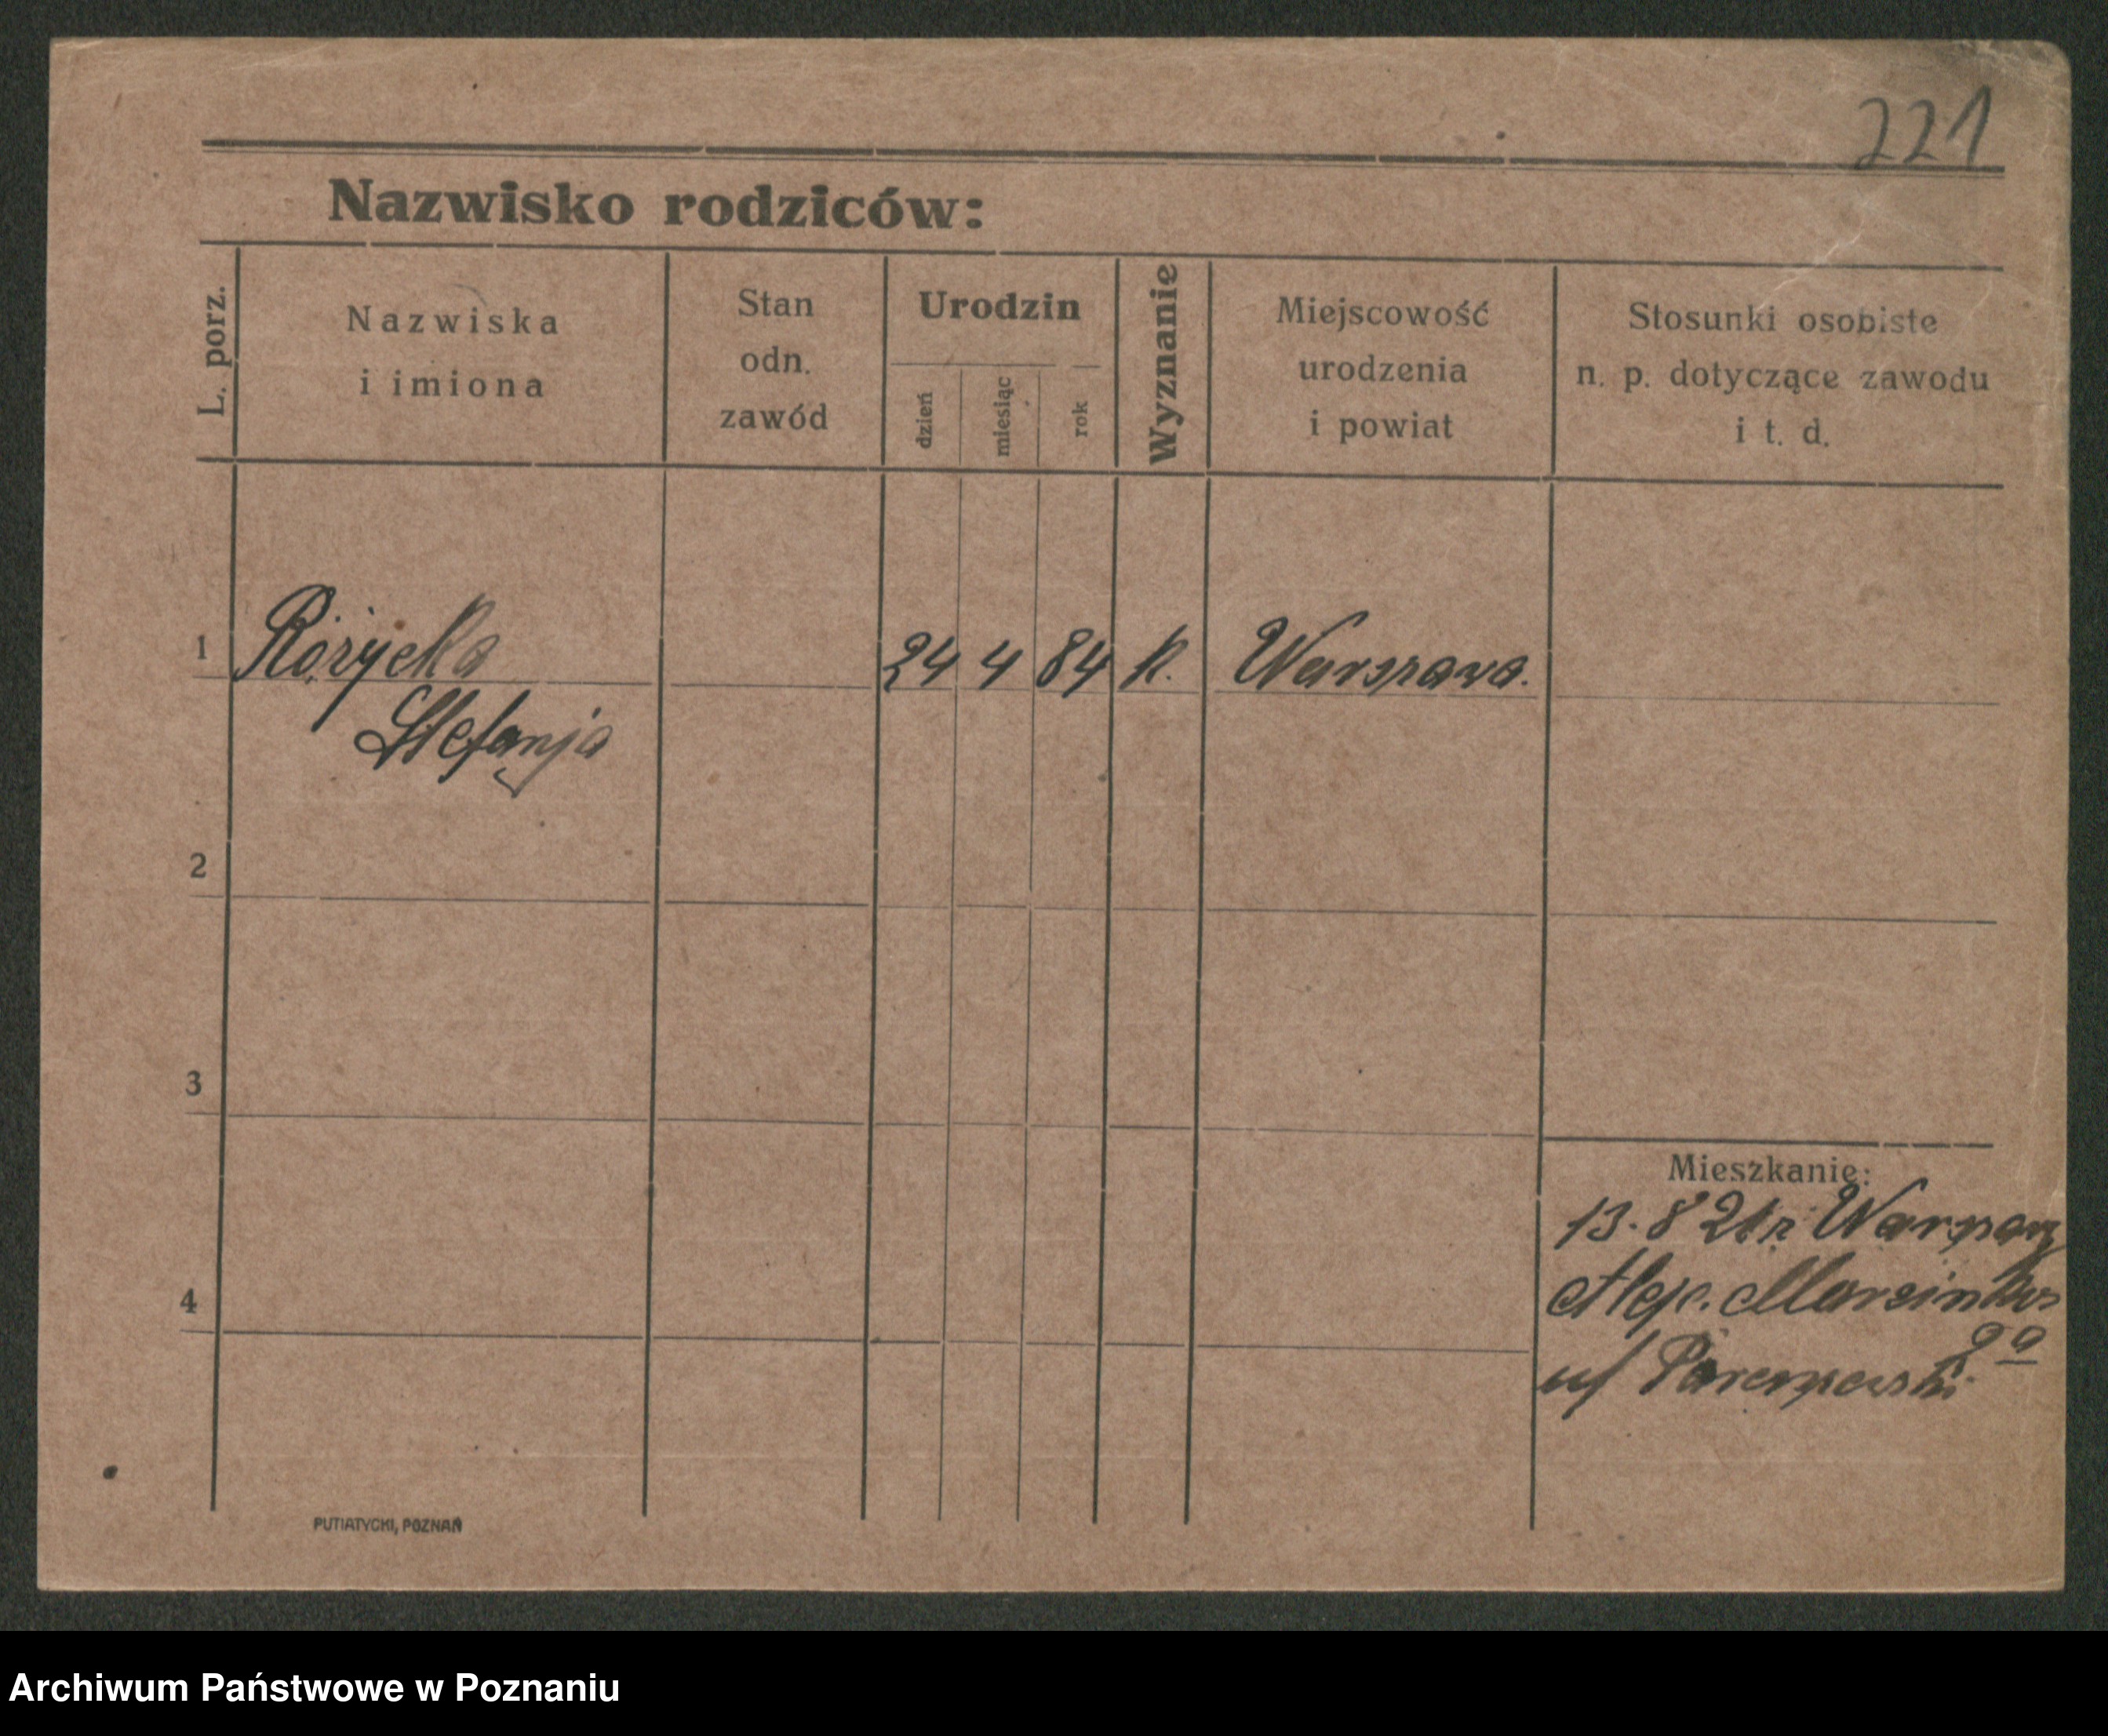 221
Nazwisko rodziców:
L. porz.
Nazwiska
i imiona
Stan
odn.
zawód
Urodzin
dzień
miesiąc
rok
Wyznanie
Miejscowość
urodzenia
i powiat
Stosunki osobiste
n. p. dotyczące zawodu
i t. d.
1 Różycka 24 4 84 k. Warszawa.
Stefanja
2
3
4
Mieszkanie:
13. 8 21 z Warszawy
Aleje. Marcinkow
go
u/
PUTIATYCKI, POZNAŃ
Archiwum Państwowe w Poznaniu